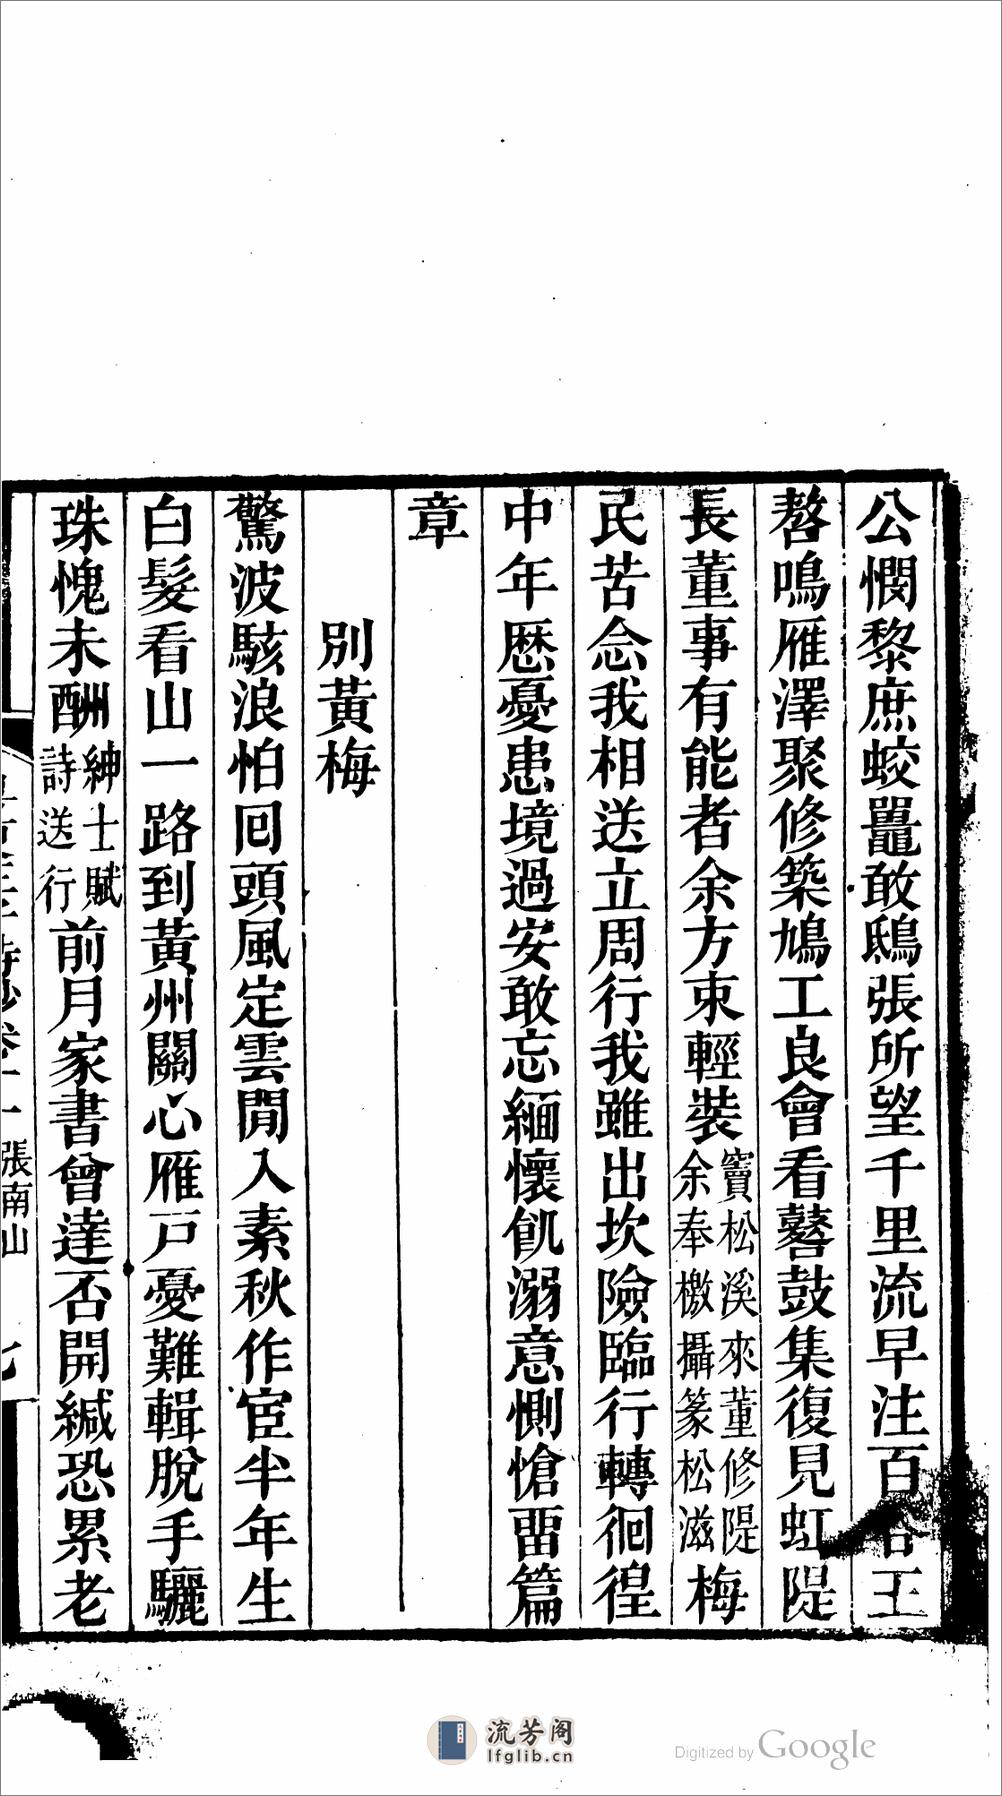 公憫黎庶蛟鼉敢鴟張所望千里流早注百谷王
嗸鳴雁澤聚修築鳩工良會看鼛鼓集復見虹隄
長董事有能者余方束輕裝竇松溪來董修隄余奉檄攝篆松滋梅
民苦念我相送立周行我雖出坎險臨行轉徊徨
中年歷憂患境過安敢忘緬懷飢溺意惻愴畱篇
章
別黃梅
驚波駭浪怕回頭風定雲閒入素秋作宦半年生
白髮看山一路到黃州關心雁戸憂難輯脫手驪
珠愧未酬紳士賦詩送行前月家書曾達否開緘恐累老
張南山
七
流芳阁
lfglib.cn
Digitized by Google